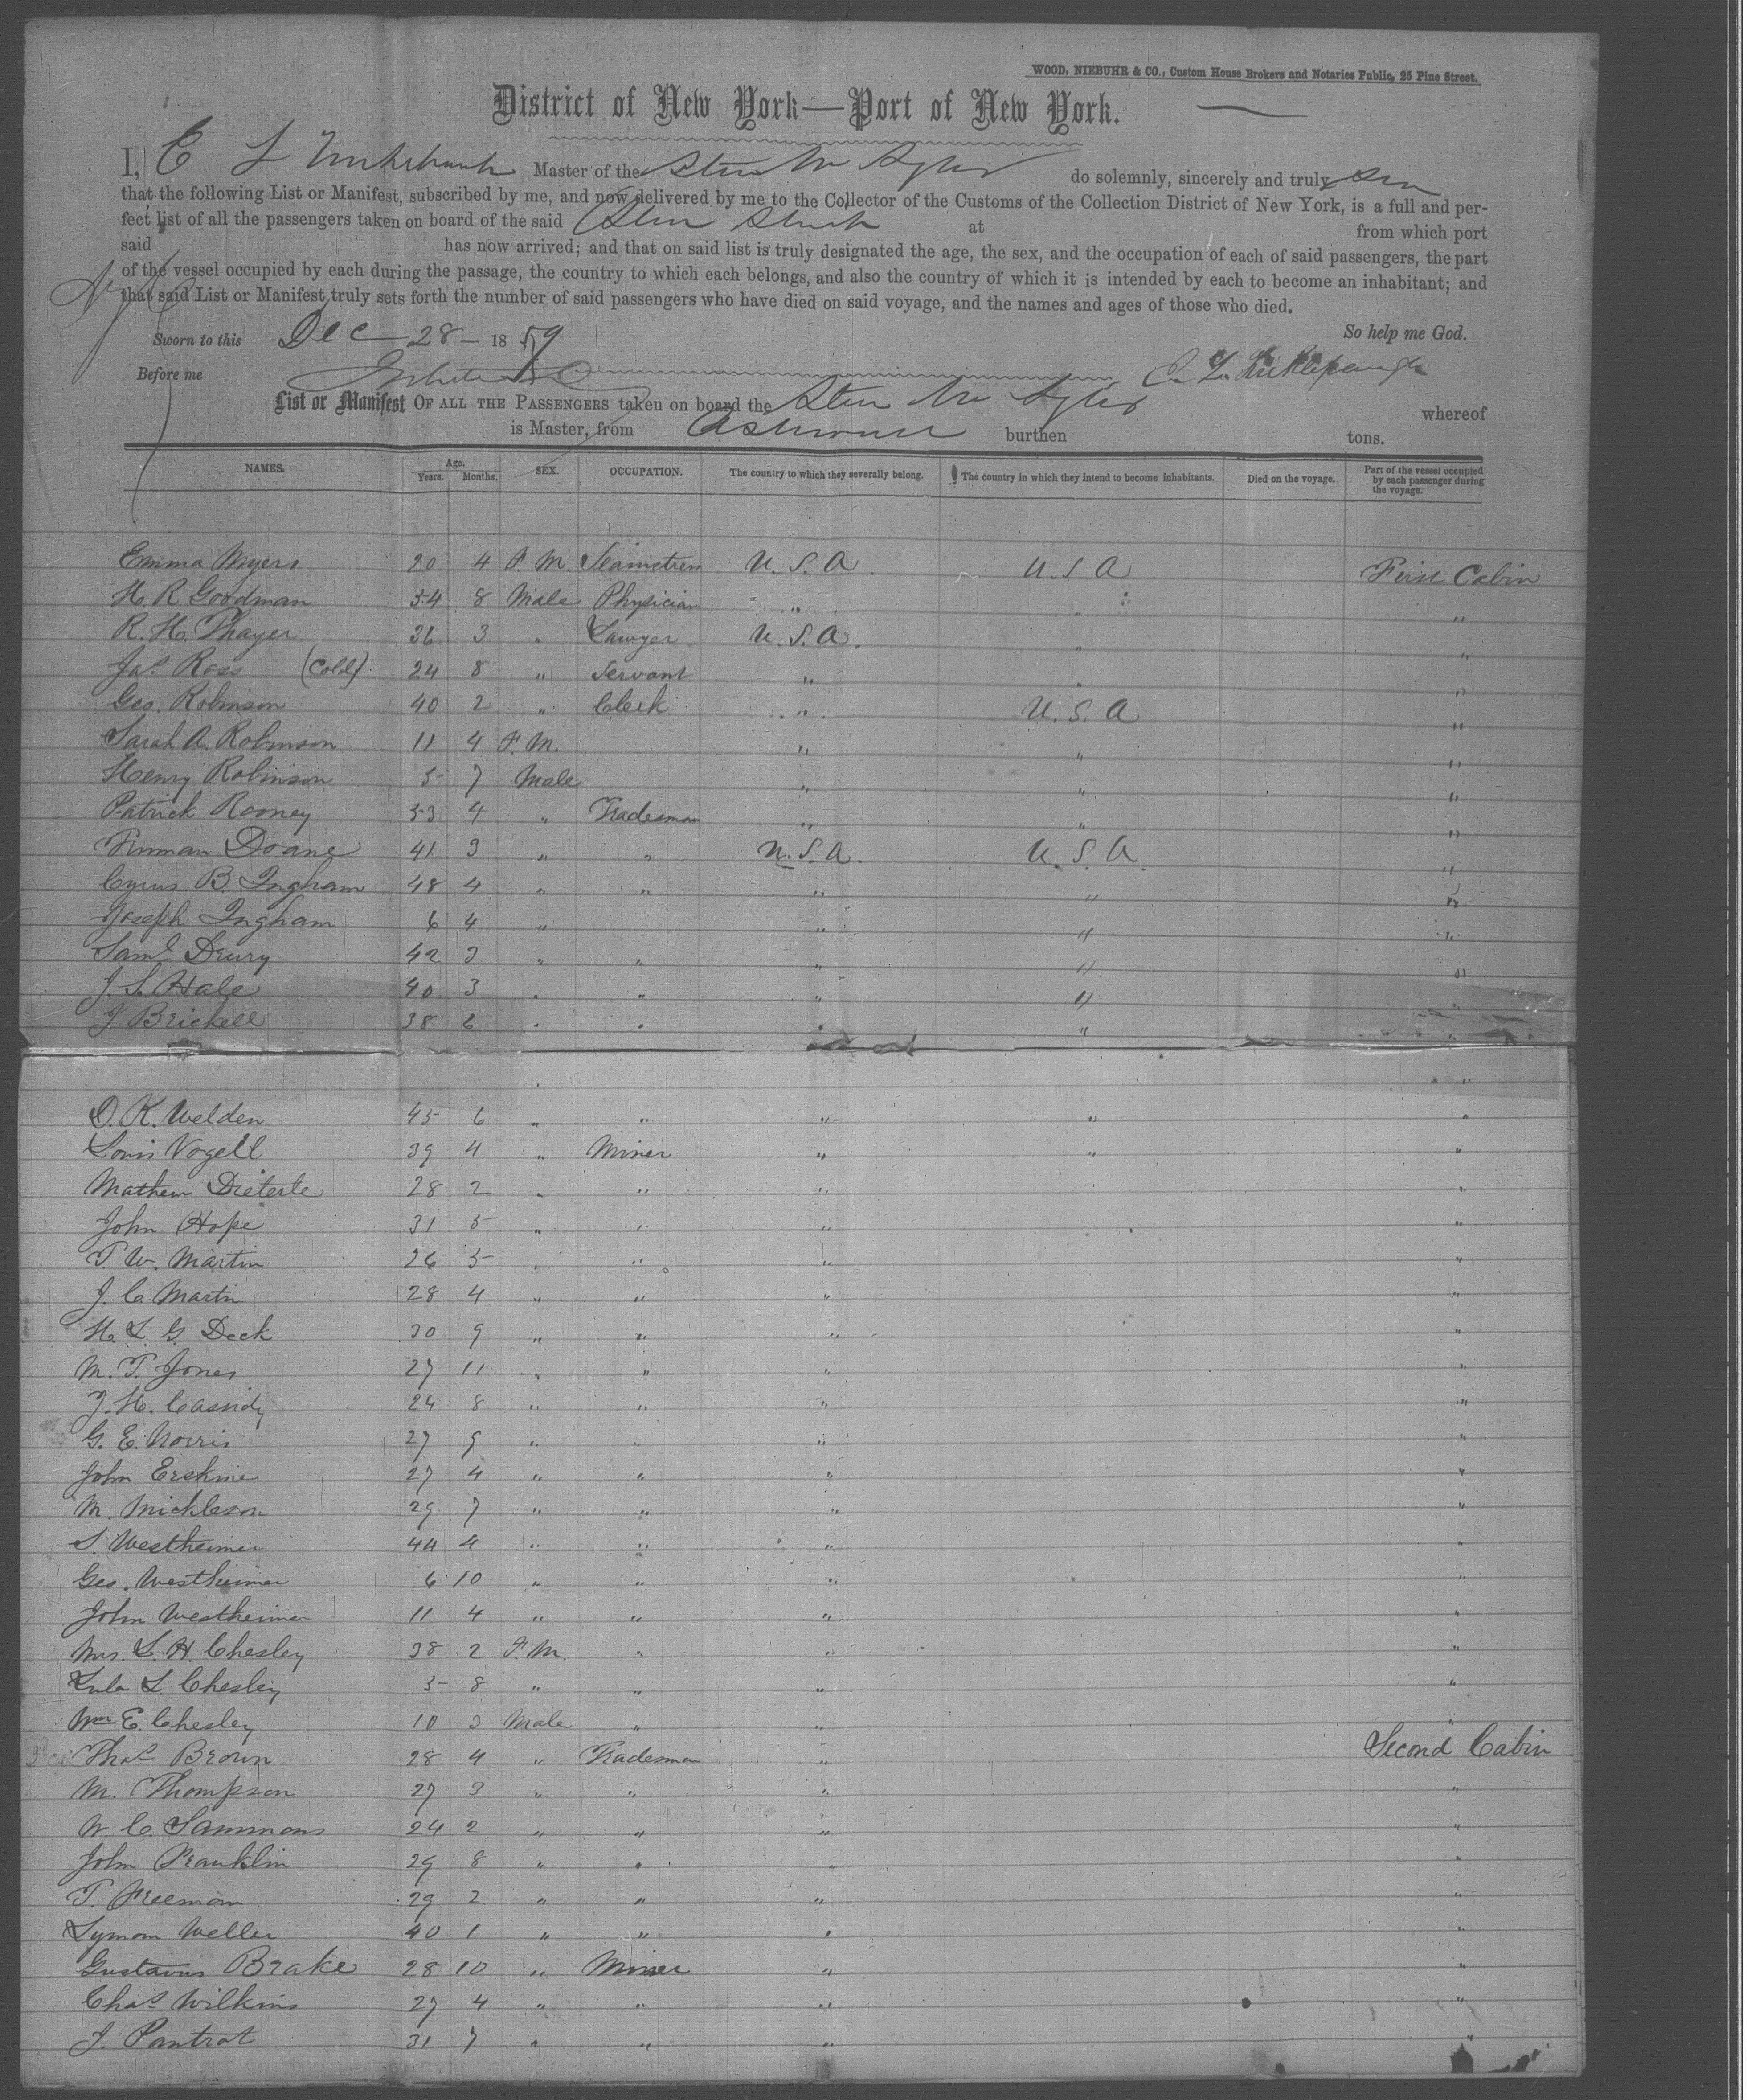 WOOD, NIEBUHR & CO., Custom House Brokers and Notaries Public, 25 Pine Street.
District of New York—Port of New York.
I, C L Master of the Star do solemnly, sincerely and truly
that the following List or Manifest, subscribed by me, and now delivered by me to the Collector of the Customs of the Collection District of New York, is a full and per-
fect list of all the passengers taken on board of the said at from which port
said has now arrived; and that on said list is truly designated the age, the sex, and the occupation of each of said passengers, the part
of the vessel occupied by each during the passage, the country to which each belongs, and also the country of which it is intended by each to become an inhabitant; and
that said List or Manifest truly sets forth the number of said passengers who have died on said voyage, and the names and ages of those who died.
Sworn to this Dec 28 - 1859 So help me God.
Before me
List or Manifest OF ALL THE PASSENGERS taken on board the whereof
is Master, from burthen tons.
NAMES. Age. Years. Months. SEX. OCCUPATION. The country to which they severally belong. The country in which they intend to become inhabitants. Died on the voyage. Part of the vessel occupied by each passenger during the voyage.
Emma Myers 20 4 F.M. Seamstress U.S.A. U.S.A First Cabin
H. R Goodman 34 8 Male Physician " " "
R. H. Thayer 36 3 " Lawyer U.S.A. " "
Jas Ross (Cold). 24 8 " Servant " " "
Geo. Robinson 40 2 " Clerk " U.S.A "
Sarah A. Robinson 11 4 F.M. " " "
Henry Robinson 5 7 Male " " "
Patrick Rooney 53 4 " Tradesman " " "
Doane 41 3 " " U.S.A. U.S.A. "
Cyrus B. Ingham 48 4 " " " " "
Joseph Ingham 6 4 " " " "
Saml Drury 42 3 " " " " "
J. S. Hale 40 3 " " " " "
J Brickell 38 6 " " " " "
D. K. Welden 45 6 " " " " "
Louis Vogell 39 4 " Miner " " "
Mathew Dieterle 28 2 " " " "
John Hope 31 5 " " " "
T. W. Martin 26 5 " " " "
J. C. Martin 28 4 " " " "
H. L. G. Deck 30 9 " " " "
M. T. Jones 27 11 " " " "
J. H. Cassidy 24 8 " " " "
G. E. Norris 27 9 " " " "
John Erskine 27 4 " " " "
M. Mickleson 29 7 " " " "
S. Westheimer 44 4 " " " "
Geo. Westheimer 6 10 " " " "
John Westheimer 11 4 " " " "
Mrs. L. H. Chesley 38 2 F.M. " " "
Lula L. Chesley 5 8 " " " "
Wm E. Chesley 10 3 Male " " "
Thos Brown 28 4 " Tradesman " Second Cabin
M. Thompson 27 3 " " " "
W. C. Sammons 24 2 " " " "
John Franklin 29 8 " " " "
T. Freeman 29 2 " " " "
Lyman Weller 40 1 " " " "
Gustavus Brake 28 10 " Miner " "
Chas Wilkins 27 4 " " " "
J. Pantrot 31 7 " " " "